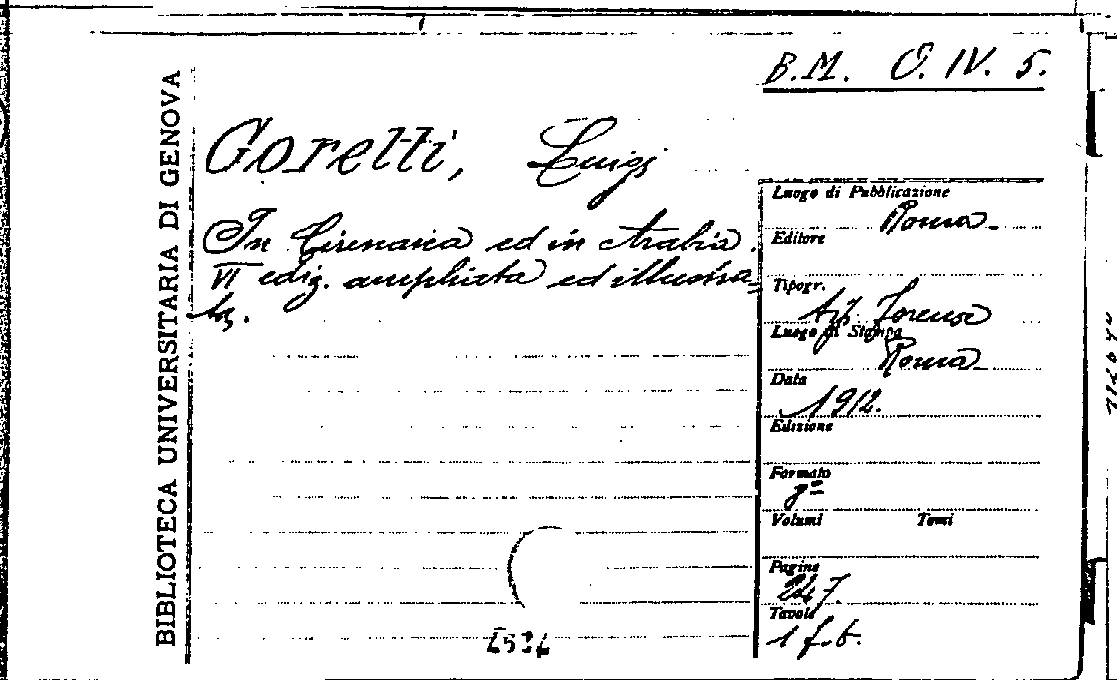 B.M. O. IV. 5.
BIBLIOTECA UNIVERSITARIA DI GENOVA
Goretti, Luigi
In Cirenaica ed in Arabia.
VI ediz. ampliata ed illustra=
ta.
Luogo di Pubblicazione
Roma
Editore
Tipogr.
Tip. Forense
Luogo di Stampa
Roma
Data
1912.
Edizione
Formato
8°
Volumi Tomi
Pagine
247.
Tavole
1 f.b.